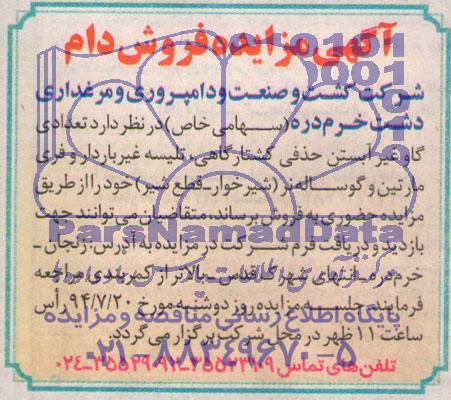 آگهی مزایده فروش دام
شرکت کشت و صنعت و دامپروری و مرغداری
دشت خرم دره (سهامی خاص) در نظر دارد تعدادی
گاو غیر آبستن حذفی کشتارگاهی، تلیسه غیر باردار و فری
مارتین و گوساله نر (شیرخوار - قطع شیر) خود را از طریق
مزایده حضوری به فروش برساند، متقاضیان می توانند جهت
بازدید و دریافت فرم شرکت در مزایده به آدرس: زنجان -
خرم دره - انتهای شهرک قدس - بالاتر از کمربندی مراجعه
فرمایند. جلسه مزایده روز دوشنبه مورخ ۹۴/۷/۲۰ رأس
ساعت ۱۱ ظهر در محل شرکت برگزار می گردد.
تلفن های تماس
ParsNamadData
پایگاه اطلاع رسانی مناقصه و مزایده
۰۲۱-۸۸۳۴۹۶۷۰-۵